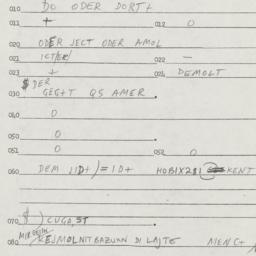 010 DO ODER DORT+
011 + 012 O
020 ODER JECT ODER AMOL
021 ICT/ER/ 022 —
023 + 024 DEMOLT
$ DER
030 GEGT QS AMER.
040 O
050 O
051 O 052 O
060 DEM ,ID+) = ID+ HOBIX281 KENT
070 $ ) CUGO, ST
080 KEJMOLNITBAZUAN DI LAJTE MENC+